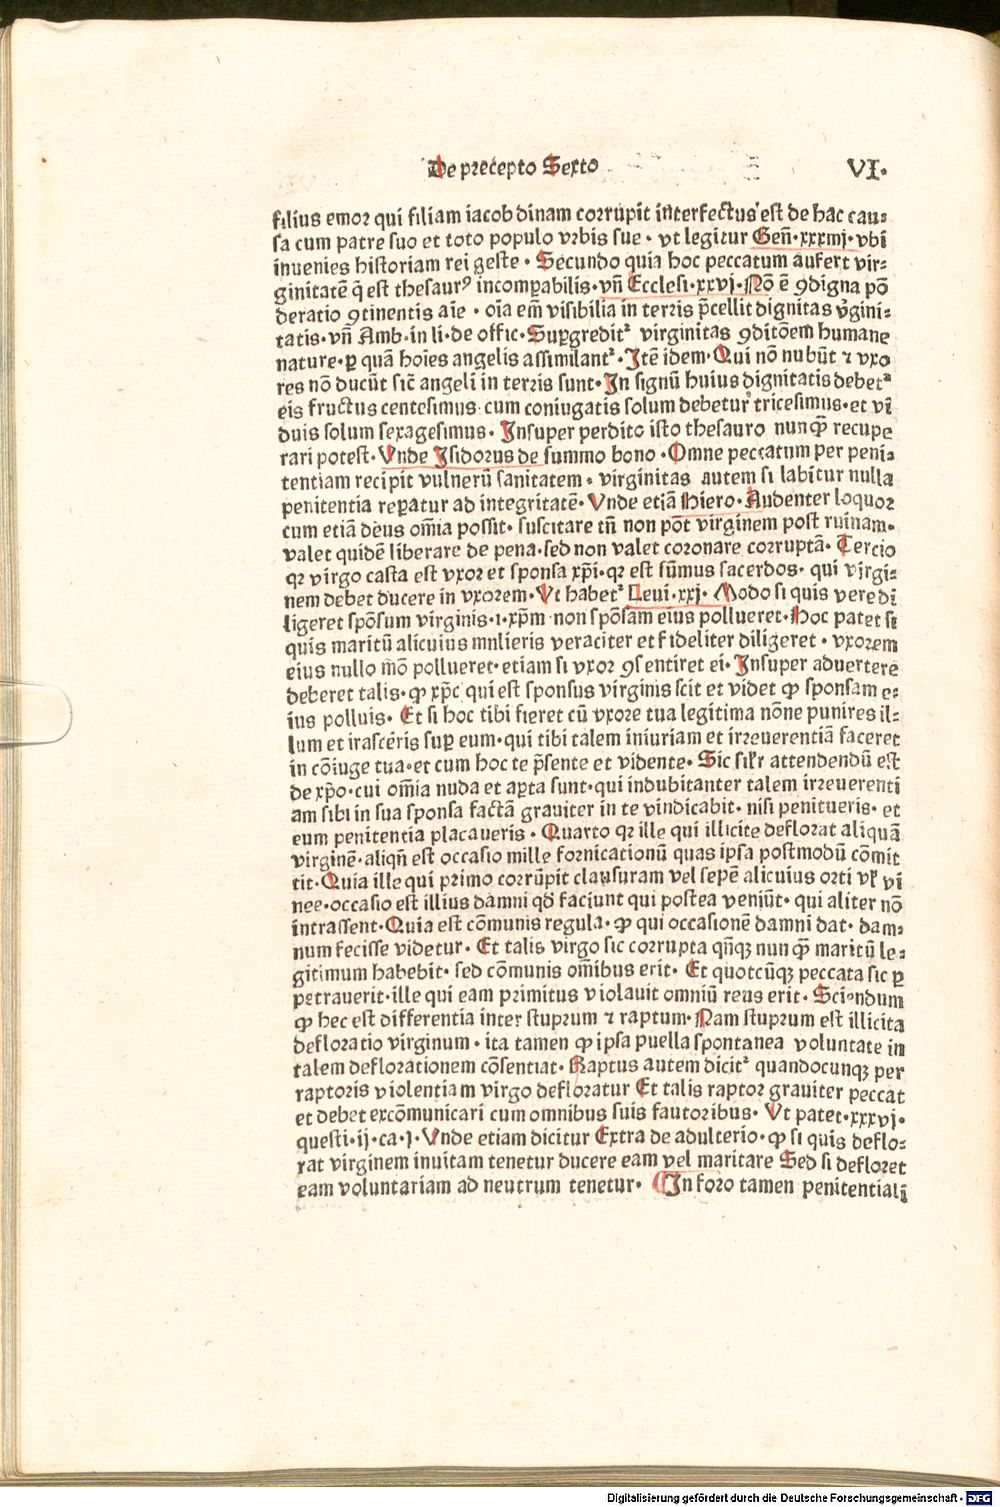 De precepto Sexto VI.
filius emor qui filiam iacob dinam corrupit interfectus est de hac cau⸗
sa cum patre suo et toto populo vrbis sue. vt legitur Geñ.xxxiiij.vbi
inuenies historiam rei geste. Secundo quia hoc peccatum aufert vir⸗
ginitatē q̄ est thesaurꝰ incomꝑabilis.vñ Ecclesi.xxvj.Nō ē ꝯdigna pō
deratio ꝯtinentis aīe. oīa em̄ visibilia in terris p̄cellit dignitas v̄gini⸗
tatis.vñ Amb.in li.de offic.Suꝑgreditᷣ virginitas ꝯditōem humane
nature.ꝑ quā hoīes angelis assimilantᷣ.Itē idem.Qui nō nubūt ⁊ vxo
res nō ducūt sic̄ angeli in terris sunt.In signū huius dignitatis debetᷣ
eis fructus centesimus cum coniugatis solum debetur tricesimus.et vi
duis solum sexagesimus. Insuper perdito isto thesauro nunꝙ̄ recupe
rari potest.Vnde Isidorus de summo bono.Omne peccatum per peni⸗
tentiam recipit vulnerū sanitatem. virginitas autem si labitur nulla
penitentia reꝑatur ad integritatē. Vnde etiā Hiero.Audenter loquor
cum etiā deus om̄ia possit. suscitare tn̄ non pōt virginem post ruinam.
valet quidē liberare de pena.sed non valet coronare corruptā. Tercio
qꝛ virgo casta est vxor et sponsa xp̄i.qꝛ est sūmus sacerdos. qui virgi⸗
nem debet ducere in vxorem.Vt habetᷣ Leui.xxj. Modo si quis vere di
ligeret spōsum virginis.i.xp̄m non spōsam eius pollueret.Hoc patet si
quis maritū alicuius mnlieris veraciter et fideliter diligeret. vxorem
eius nullo mō pollueret.etiam si vxor ꝯsentiret ei. Insuper aduertere
deberet talis.ꝙ xp̄c qui est sponsus virginis scit et videt ꝙ sponsam e⸗
ius polluis. Et si hoc tibi fieret cū vxore tua legitima nōne punires il⸗
lum et irasceris suꝑ eum.qui tibi talem iniuriam et irreuerentiā faceret
in cōiuge tua.et cum hoc te p̄sente et vidente. Sic siłr attendendū est
de xp̄o.cui om̄ia nuda et aꝑta sunt.qui indubitanter talem irreuerenti
am sibi in sua sponsa factā grauiter in te vindicabit. nisi penitueris. et
eum penitentia placaueris. Quarto qꝛ ille qui illicite deflorat aliquā
virginē.aliqñ est occasio mille fornicationū quas ipsa postmodū cōmit
tit.Quia ille qui primo corrūpit clausuram vel sepem alicuius orti vł vi
nee.occasio est illius damni qd̄ faciunt qui postea veniūt. qui aliter nō
intrassent.Quia est cōmunis regula. ꝙ qui occasionē damni dat. dam⸗
num fecisse videtur. Et talis virgo sic corrupta qn̄qꝫ nunꝙ̄ maritū le⸗
gitimum habebit. sed cōmunis om̄ibus erit. Et quotcūqꝫ peccata sic ꝑ
petrauerit.ille qui eam primitus violauit omniū reus erit. Sciendum
ꝙ hec est differentia inter stuprum ⁊ raptum.Nam stuprum est illicita
defloratio virginum. ita tamen ꝙ ipsa puella spontanea voluntate in
talem deflorationem cōsentiat. Raptus autem dicitᷣ quandocunqꝫ per
raptoris violentiam virgo defloratur Et talis raptor grauiter peccat
et debet excōmunicari cum omnibus suis fautoribus. Vt patet.xxxvj.
questi.ij.ca.j.Vnde etiam dicitur Extra de adulterio. ꝙ si quis deflo⸗
rat virginem inuitam tenetur ducere eam vel maritare Sed si defloret
eam voluntariam ad neutrum tenetur. ¶In foro tamen penitentiali
Digitalisierung gefördert durch die Deutsche Forschungsgemeinschaft - DFG